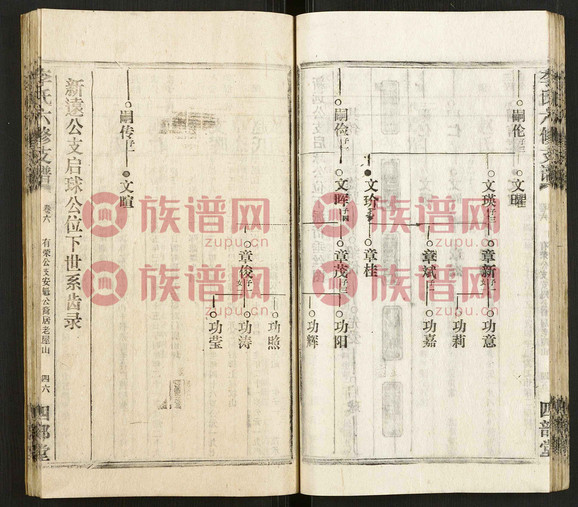 李氏六修支谱
四部堂
嗣伦子二
文曜
文瑛子二
章新子二
功意
功莉
章斌子一
功嘉
嗣俭子二
文玲
章桂
文晖子嗣
章茂子二
功阳
功辉
章俊子三
功照
功涛
功莹
嗣传子一
文暄
新遠公支启球公位下世系齿录
李氏六修支谱
卷六
四六
四部堂
族谱网
zupu.cn
族谱网
zupu.cn
族谱网
zupu.cn
族谱网
zupu.cn